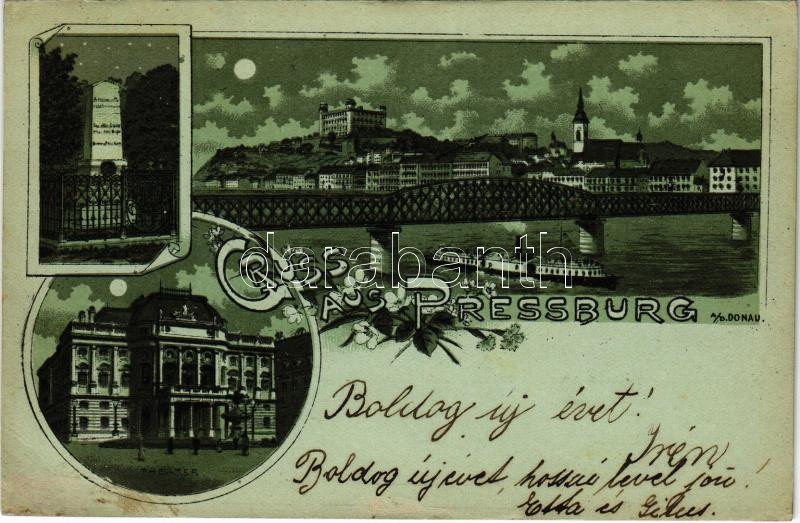 GRUSS
AUS PRESSBURG A/D. DONAU.
THEATER
darabanth
Boldog új évet!
Irén
Boldog újévet, hosszú levél jön!
Etta és